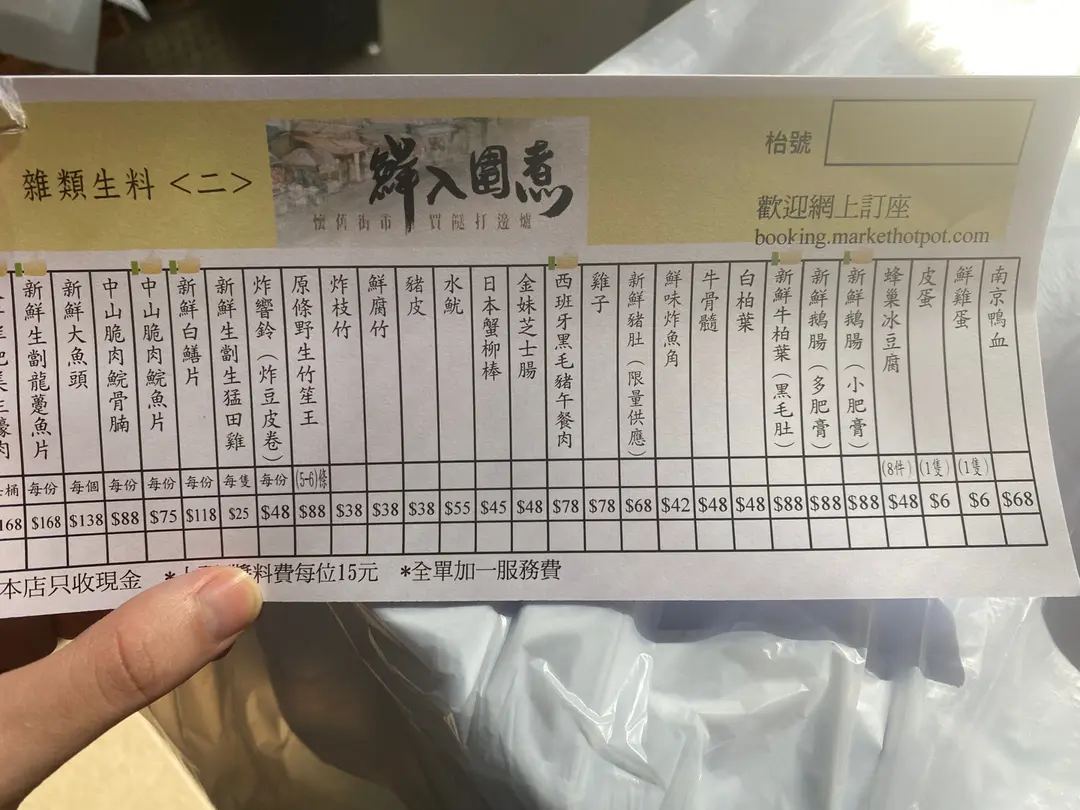 雜類生料<二>
鮮入圍煮
懷舊街市 買餸打邊爐
枱號
歡迎網上訂座
booking.markethotpot.com
南京鴨血 $68
鮮雞蛋 (1隻) $6
皮蛋 (1隻) $6
蜂巢冰豆腐 (8件) $48
新鮮鵝腸（小肥膏） $88
新鮮鵝腸（多肥膏） $88
新鮮牛柏葉（黑毛肚） $88
白柏葉 $48
牛骨髓 $48
鮮味炸魚角 $42
新鮮豬肚（限量供應） $68
雞子 $78
西班牙黑毛豬午餐肉 $78
金妹芝士腸 $48
日本蟹柳棒 $45
水魷 $55
豬皮 $38
鮮腐竹 $38
炸枝竹 $38
原條野生竹笙王 (5-6)條 $88
炸響鈴（炸豆皮卷） 每份 $48
新鮮生劏生猛田雞 每隻 $25
新鮮白鱔片 每份 $118
中山脆肉鯇魚片 每份 $75
中山脆肉鯇骨腩 每份 $88
新鮮大魚頭 每個 $138
新鮮生劏龍躉魚片 每份 $168
桶 168
本店只收現金 *醬料費每位15元 *全單加一服務費